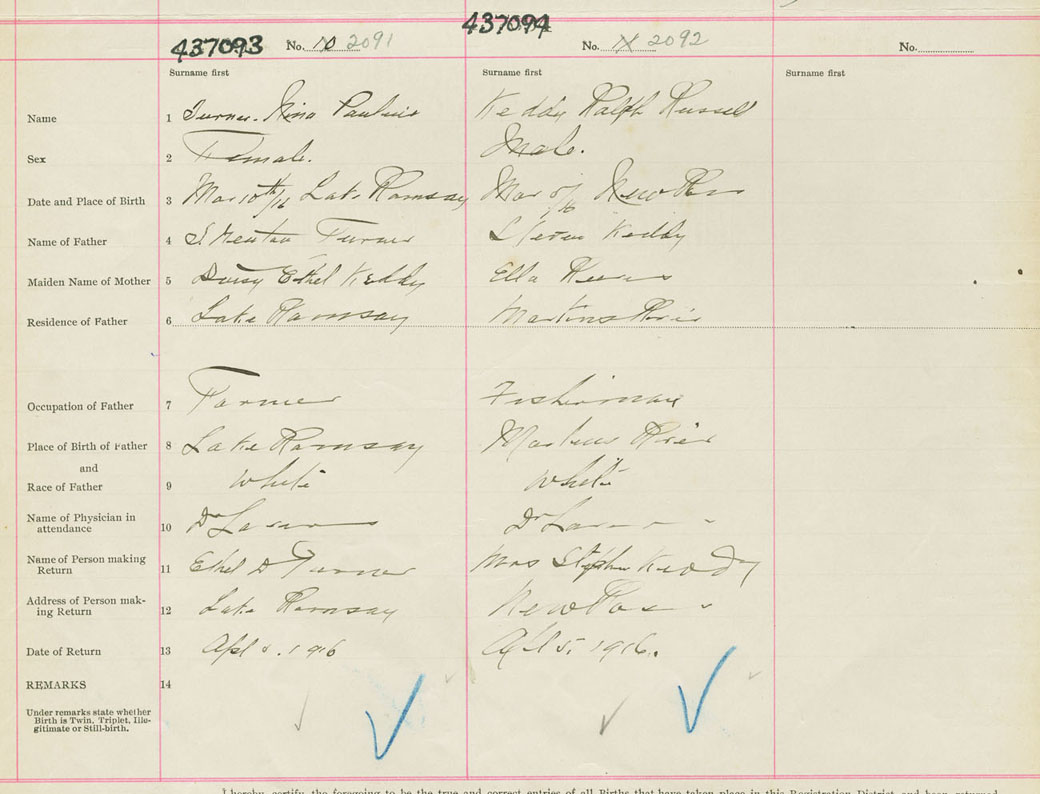 437093 No. 10 2091
437094 No. X 2092
No.
Surname first
Surname first
Surname first
Name 1 Turner. Nina Pauline Keddy Ralph Russell
Sex 2 Female. Male.
Date and Place of Birth 3 Mar 10th/16 Lake Ramsay Mar 5/16 New Ross
Name of Father 4 Turner Keddy
Maiden Name of Mother 5 Daisy Ethel Keddy Ella
Residence of Father 6 Lake Ramsay Martins River
Occupation of Father 7 Farmer Fisherman
Place of Birth of Father 8 Lake Ramsay Martins River
and
Race of Father 9 White White
Name of Physician in
attendance 10 Dr Dr
Name of Person making
Return 11 Ethel D Turner Mrs Stephen Keddy
Address of Person mak-
ing Return 12 Lake Ramsay New Ross
Date of Return 13 Apl 1916 Apl 5. 1916.
REMARKS 14
Under remarks state whether
Birth is Twin, Triplet, Ille-
gitimate or Still-birth.
I hereby certify the foregoing to be the true and correct entries of all Births that have taken place in this Registration District and been returned